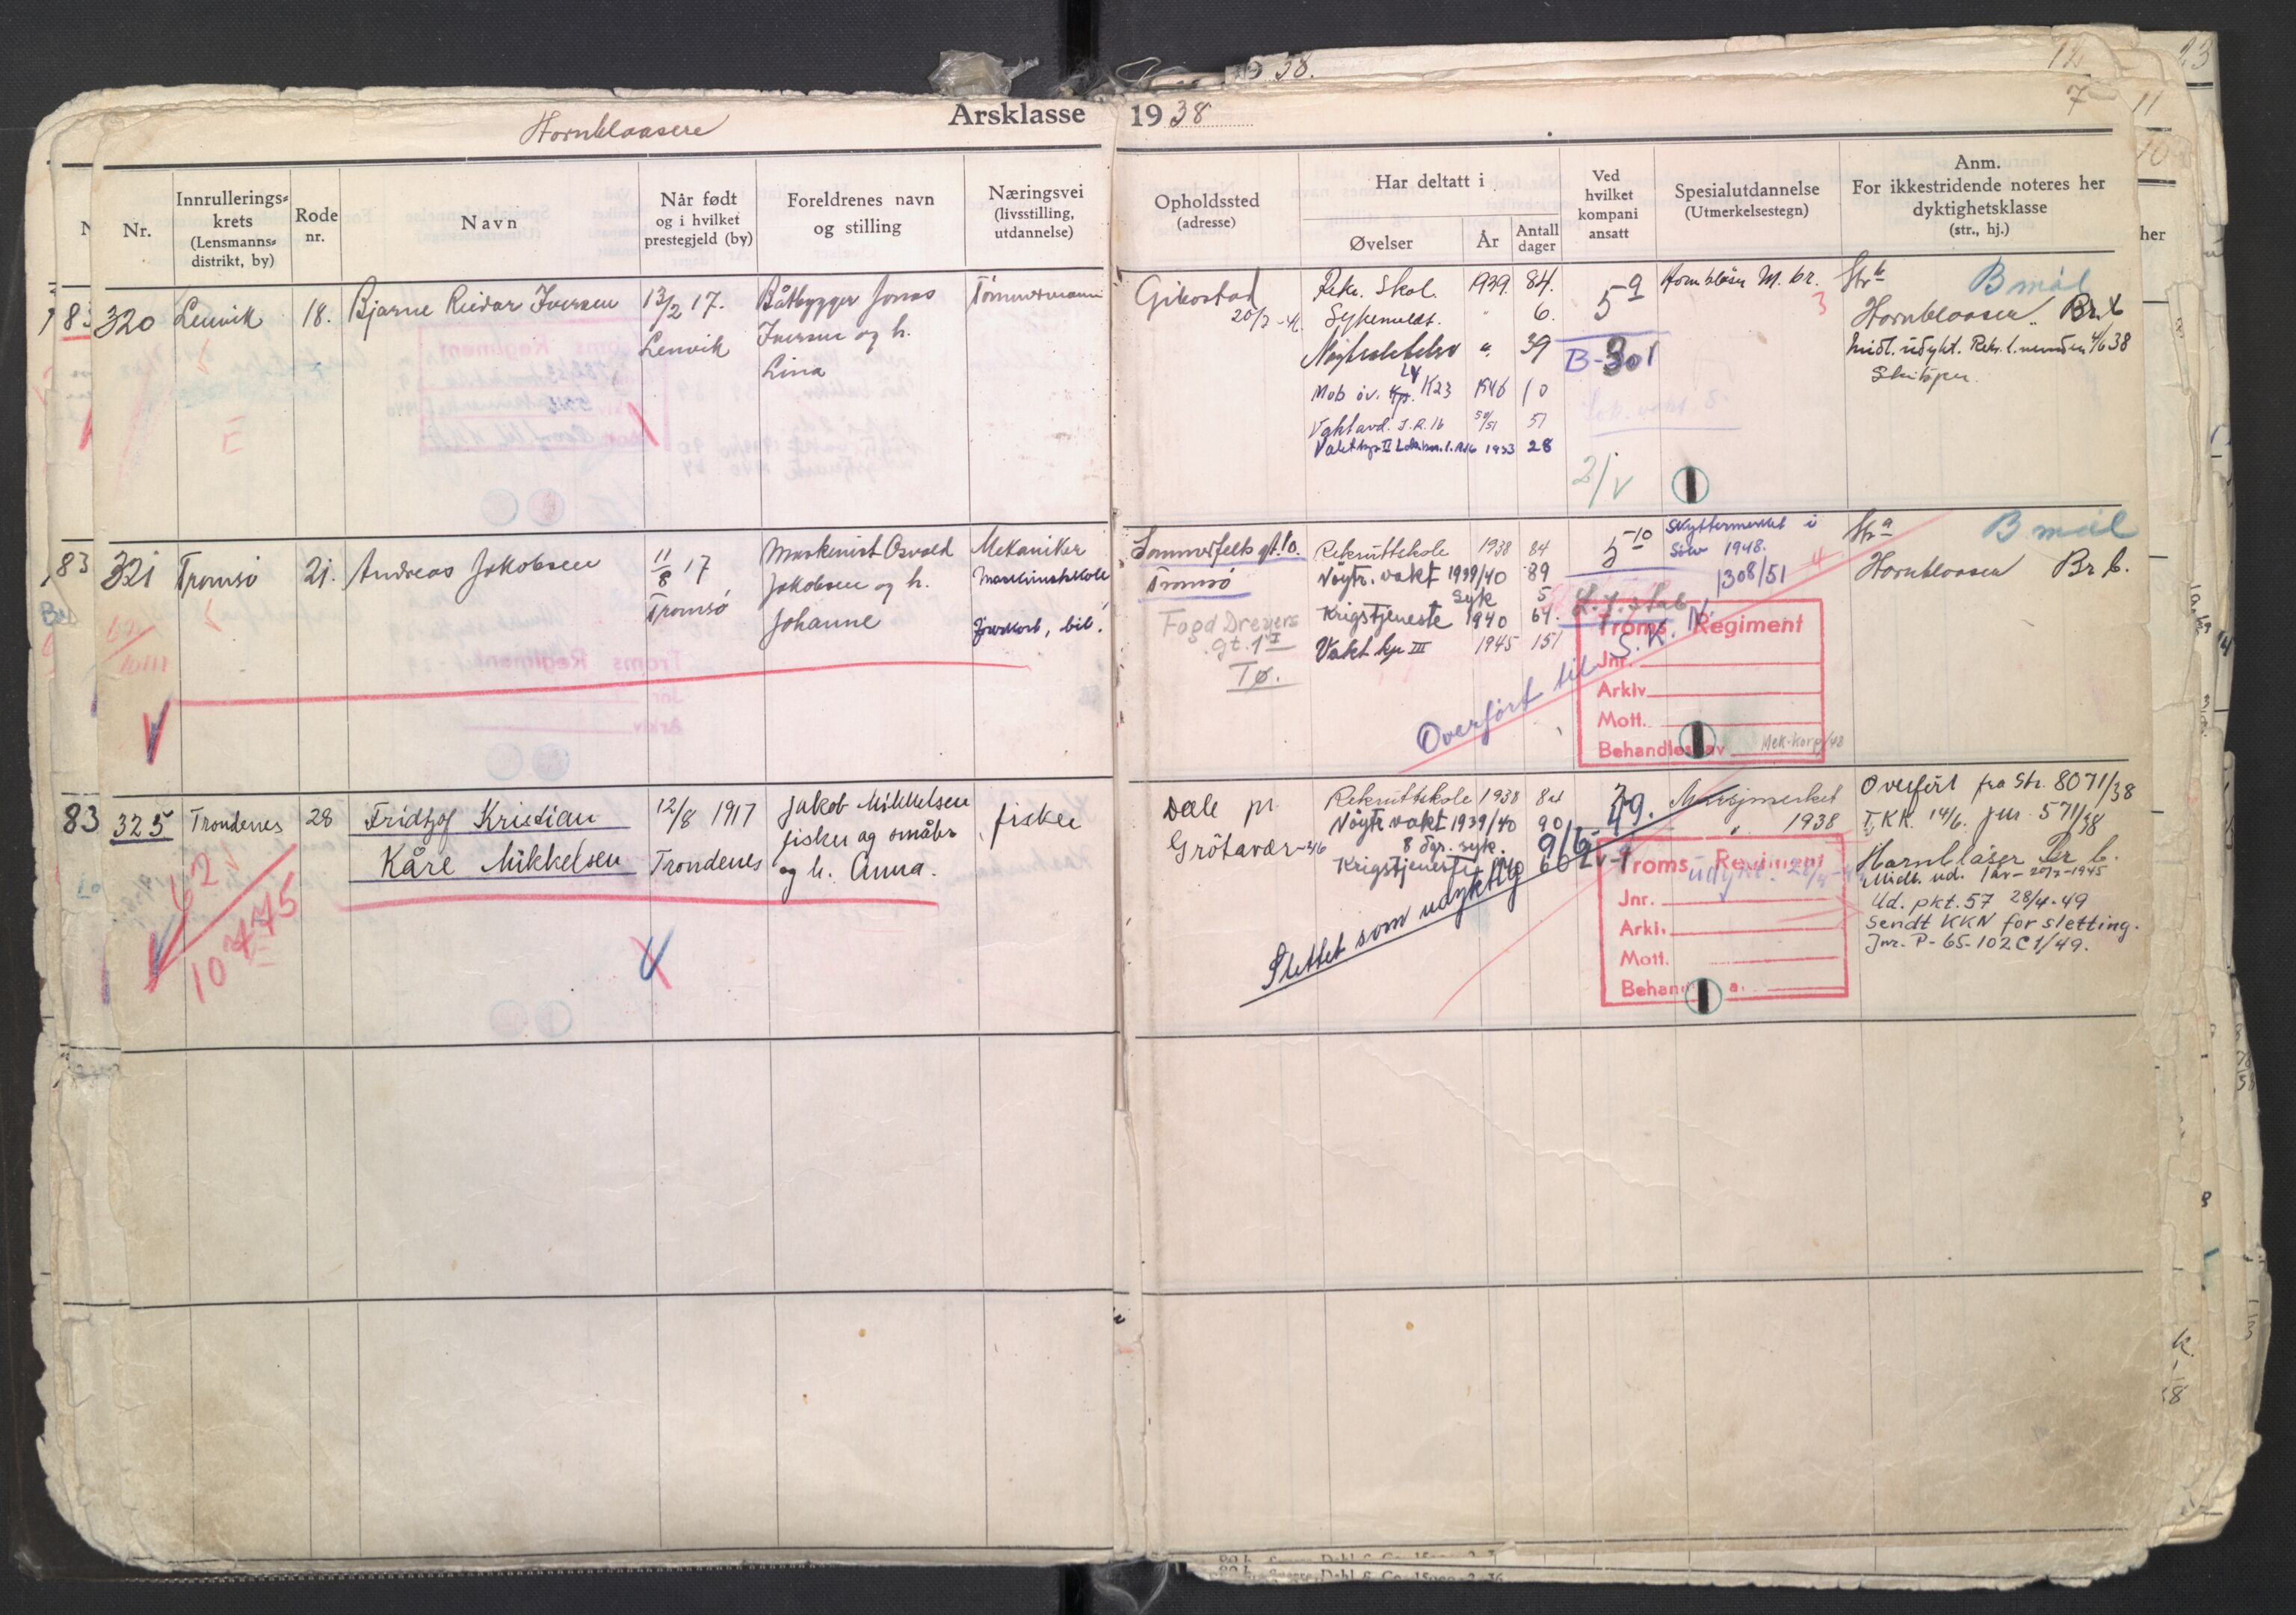 38.
12
23
Hornblaasere
Årsklasse 1938
7
11
10
Nr.
Innrullerings-
krets
(Lensmanns-
distrikt, by)
Rode
nr.
Navn
Når født
og i hvilket
prestegjeld (by)
Foreldrenes navn
og stilling
Næringsvei
(livsstilling,
utdannelse)
Opholdssted
(adresse)
Har deltatt i
Øvelser
År
Antall
dager
Ved
hvilket
kompani
ansatt
Spesialutdannelse
(Utmerkelsestegn)
Anm.
For ikkestridende noteres her
dyktighetsklasse
(str., hj.)
her
83
320
Lenvik
18.
Bjarne Reidar Iversen
13/2 17.
Lenvik
Båtbygger Jonas
Iversen og h.
Lina
Tømmermann
E
Gibostad
20/7-41
Rekr. Skol. 1939. 84.
Sykemeldt. " 6.
Nøytralitetsv " 39
Mob öv. Kp. K23 1946 10
Vaktavd. I.R.16 50/51 51
1953 28
5 9
B-301
2/V
Hornblåser M. br.
3
Str
B mål
Hornblaaser Br. b
Midl. udykt. Rekr. 4/6 38
83
321
Tromsø
21.
Andreas Jakobsen
11/8 17
Tromsø
Maskinist Osvald
Jakobsen og h.
Johanne
Mekaniker
Maskinistskole
Førerkort, bil.
Sommerfelts gt. 10.
Tromsø
Fogd Dreyers
gt. 1 I
Tø.
Rekruttskole 1938 84
Nøytr. vakt 1939/40 89
Syk 5
Krigstjeneste 1940 64.
Vakt kp III 1945 151
5 10
Skyttermerket i
Sølv 1948.
1308/51
4
Overført til S.K. 16
Troms Regiment
Jnr.
Arkiv
Mott.
Behandles av
Str a
B mål
Hornblaaser Br. b.
83
325
Trondenes
28
Fridtjof Kristian
Kåre Mikkelsen
12/8 1917
Trondenes
Jakob Mikkelsen
fisker og småbr
og h. Anna.
fisker
10775
Dale pr
Grötavær
Rekruttskole 1938 84
Nöytr vakt 1939/40 90
8 dgr. syk.
Krigstjeneste 1940 60
Slettet som udyktig 9/6-49.
Marsjmerket
" 1938
Troms Regiment
udykt. 28/4-49
Jnr.
Arkiv
Mott.
Behandles av
Overført fra Str. 8071/38
T.KR. 14/6. jnr. 571/38
Hornblåser Br b.
Midl. ud. 1 år - 20/7-1945
Ud. pkt. 57 28/4-49
Sendt KKN for sletting.
Jnr. P-65-102 C1/49.